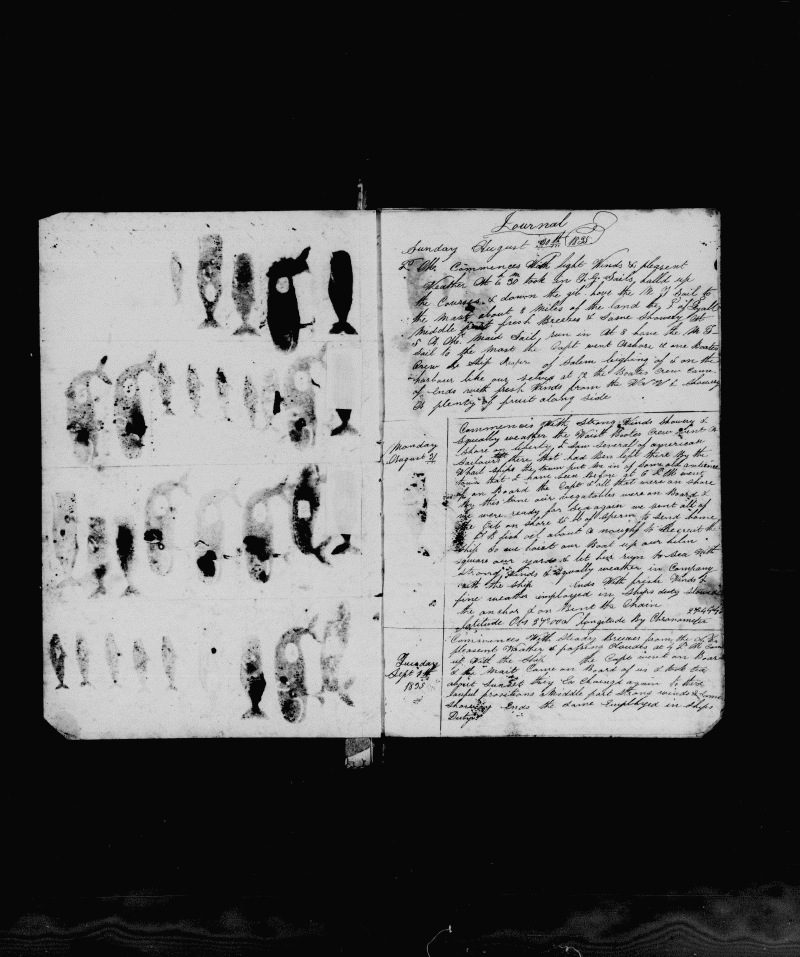 Journal
Sunday August 30th 1835
P. M. Commences With light Winds & pleasent
Weather At 6 30 took in Sails, hauld up
the Courses & down the gib have the M. T Sail to
the Mast about 8 Miles of the land the
Middle part fresh Breezes & Some Showery At
5 A. M. Maid Sail, run in At 8 have the M. T.
Sail to the Mast the Capt went Ashore & one Boates
Crew the Ship of Salem leighing of & on the
harbour like our selves at the Boates Crew Came
of Ends with fresh Winds from the & Showery
plenty of fruit along side
Monday
August 31
Commences With Strong Winds Showery &
Squally weather the Waist Boates Crew went on
shore on liberty, & Saw Several of american
Sailours there that had ben left there By the
Whail ships the town put me in of some old
towns that I have seen before at 5 P. M. went
on Board the Capt & all that were on shore
By this time our vegatables were on Board &
we were ready for Sea again we sent all of
the Oil on shore to Sperm to send home
about a nought to the
ship So we hoist our Boat up our helm
square our yards & let her run to Sea With
Strong Winds & Squally weather in Company
with the ship Ends With fresh Winds &
fine weather imployed in Ships duty Stowed
the anchor & on Bent the Chain
Latitude Obs longitude By Chronometer
Tuesday
Sept 1st
1835
Commences With Steady Breezes from the
pleasent Weather & passing Clouds at 4 P. M.
up with the Ship the Capt went on Board
& the Mait Came on Board of us &
about Sunset they Ex Chaingd again to thier
lawful prositions Middle part strong winds & some
showery Ends the same Employed in Ships
Dutys